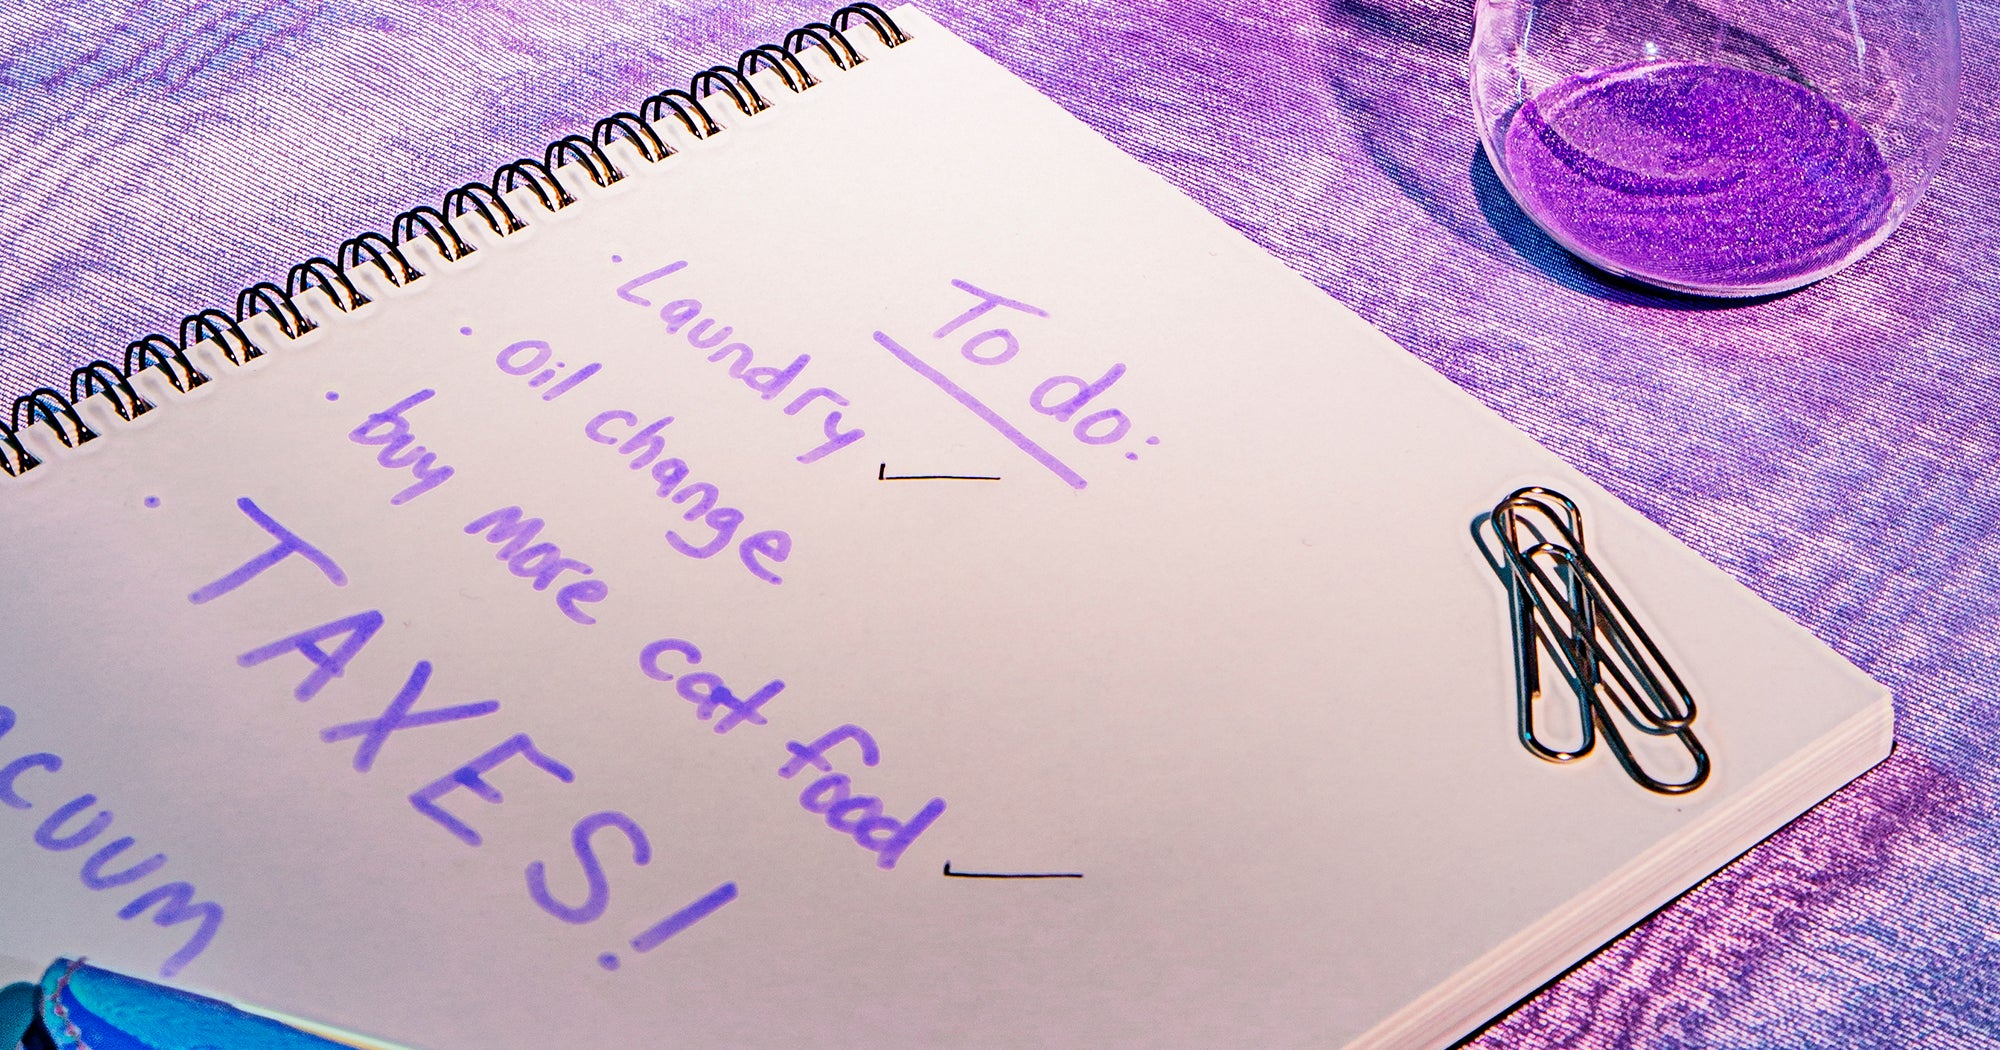 To do:
· Laundry ✓
· Oil change
· buy more cat food ✓
· TAXES!
acuum